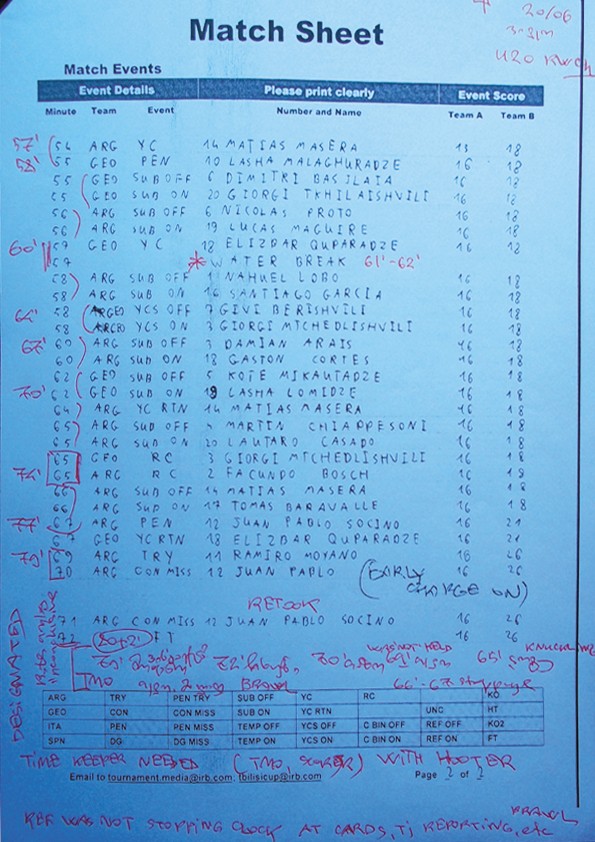 20/06
Match Sheet
U20 RWCh
Match Events
Event Details Please print clearly Event Score
Minute Team Event Number and Name Team A Team B
57' 54 ARG YC 14 MATIAS MASERA 13 18
58' 55 GEO PEN 10 LASHA MALAGHURADZE 16 18
55 GEO SUB OFF 6 DIMITRI BASILAIA 16 18
55 GEO SUB ON 20 GIORGI TKHILAISHVILI 16 18
56 ARG SUB OFF 6 NICOLAS PROTO 16 18
56 ARG SUB ON 19 LUCAS MAGUIRE 16 18
60' 57 GEO YC 18 ELIZBAR QUPARADZE 16 18
57 * WATER BREAK 61'-62'
58 ARG SUB OFF 1 NAHUEL LOBO 16 18
58 ARG SUB ON 16 SANTIAGO GARCIA 16 18
64' 58 GEO YCS OFF 7 GIVI BERISHVILI 16 18
58 GEO YCS ON 3 GIORGI MTCHEDLISHVILI 16 18
67' 60 ARG SUB OFF 3 DAMIAN ARAIS 16 18
60 ARG SUB ON 18 GASTON CORTES 16 18
62 GEO SUB OFF 5 KOTE MIKAUTADZE 16 18
70' 62 GEO SUB ON 19 LASHA LOMIDZE 16 18
64 ARG YC RTN 14 MATIAS MASERA 16 18
65 ARG SUB OFF MARTIN CHIAPPESONI 16 18
65 ARG SUB ON 20 LAUTARO CASADO 16 18
65 GEO RC 3 GIORGI MTCHEDLISHVILI 16 18
74' 65 ARG RC 2 FACUNDO BOSCH 16 18
66 ARG SUB OFF 14 MATIAS MASERA 16 18
66 ARG SUB ON 17 TOMAS BARAVALLE 16 18
77' 67 ARG PEN 12 JUAN PABLO SOCINO 16 21
67 GEO YC RTN 18 ELIZBAR QUPARADZE 16 21
79' 69 ARG TRY 11 RAMIRO MOYANO 16 26
70 ARG CON MISS 12 JUAN PABLO (EARLY 16 26
CHARGE ON)
RETOOK
71 ARG CON MISS 12 JUAN PABLO SOCINO 16 26
72 FT 16 26
DESIGNATED
WAS NOT HELD
72' 70' 65'
TMO BRAWL 66'-67
ARG TRY PEN TRY SUB OFF YC RC KO
GEO CON CON MISS SUB ON YC RTN UNC HT
ITA PEN PEN MISS TEMP OFF YCS OFF C BIN OFF REF OFF KO2
SPN DG DG MISS TEMP ON YCS ON C BIN ON REF ON FT
TIME KEEPER NEEDED (TMO, SCORER) WITH HOOTER
Email to tournament.media@irb.com; tbilisicup@irb.com Page 2 of 2
BRAWL
REF WAS NOT STOPPING CLOCK AT CARDS, TJ REPORTING, etc